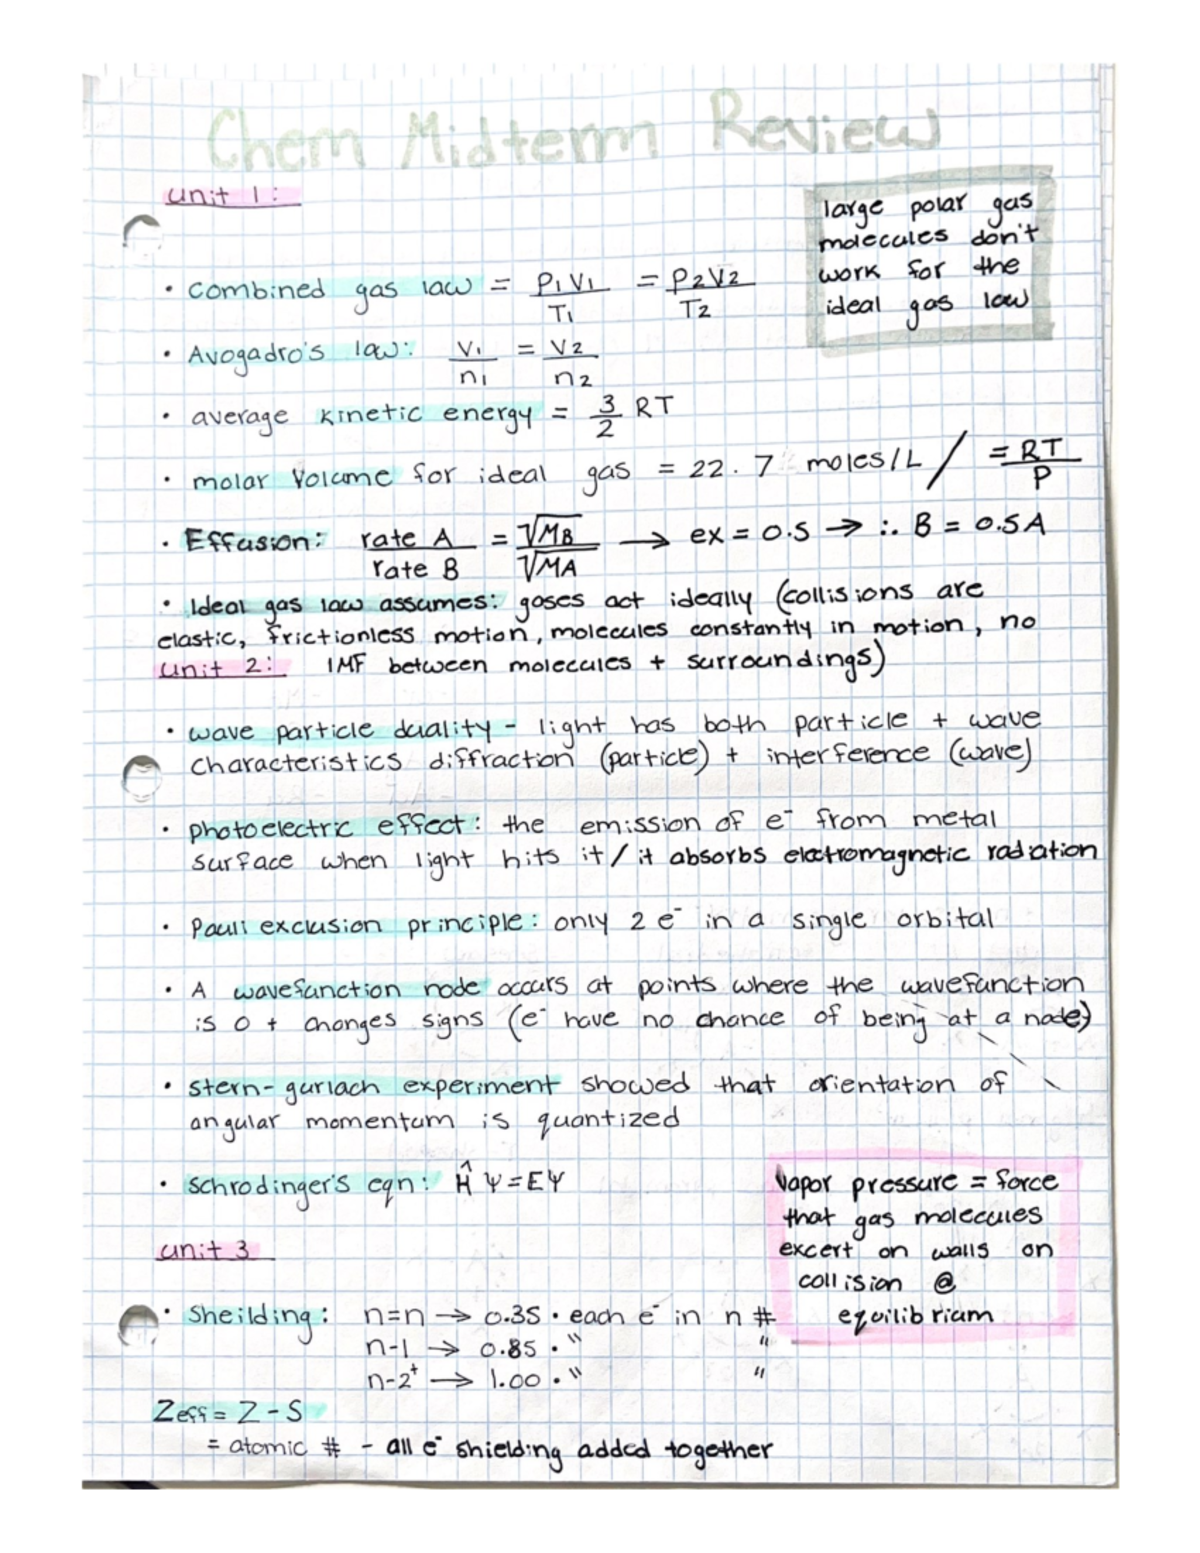 Chem Midterm Review
unit 1:
large polar gas
molecules don't
work for the
ideal gas law
• Combined gas law = P1V1/T1 = P2V2/T2
• Avogadro's law: V1/n1 = V2/n2
• average kinetic energy = 3/2 RT
• molar volume for ideal gas = 22.7 moles/L / = RT/P
• Effusion: rate A/rate B = √MB/√MA → ex = 0.5 → ∴ B = 0.5A
• Ideal gas law assumes: gases act ideally (collisions are
elastic, frictionless motion, molecules constantly in motion, no
unit 2: IMF between molecules + surroundings)
• wave particle duality - light has both particle + wave
characteristics diffraction (particle) + interference (wave)
• photoelectric effect: the emission of e⁻ from metal
surface when light hits it / it absorbs electromagnetic radiation
• Pauli exclusion principle: only 2 e⁻ in a single orbital
• A wavefunction node occurs at points where the wavefunction
is 0 + changes signs (e⁻ have no chance of being at a node)
• stern-gurlach experiment showed that orientation of
angular momentum is quantized
• schrodinger's eqn: Ĥ Ψ = EΨ
vapor pressure = force
that gas molecules
excert on walls on
collision @
equilibrium
unit 3
• Sheilding: n=n → 0.35 • each e⁻ in n #
n-1 → 0.85 • " "
n-2⁺ → 1.00 • " "
Zeff = Z - S
= atomic # - all e⁻ shielding added together